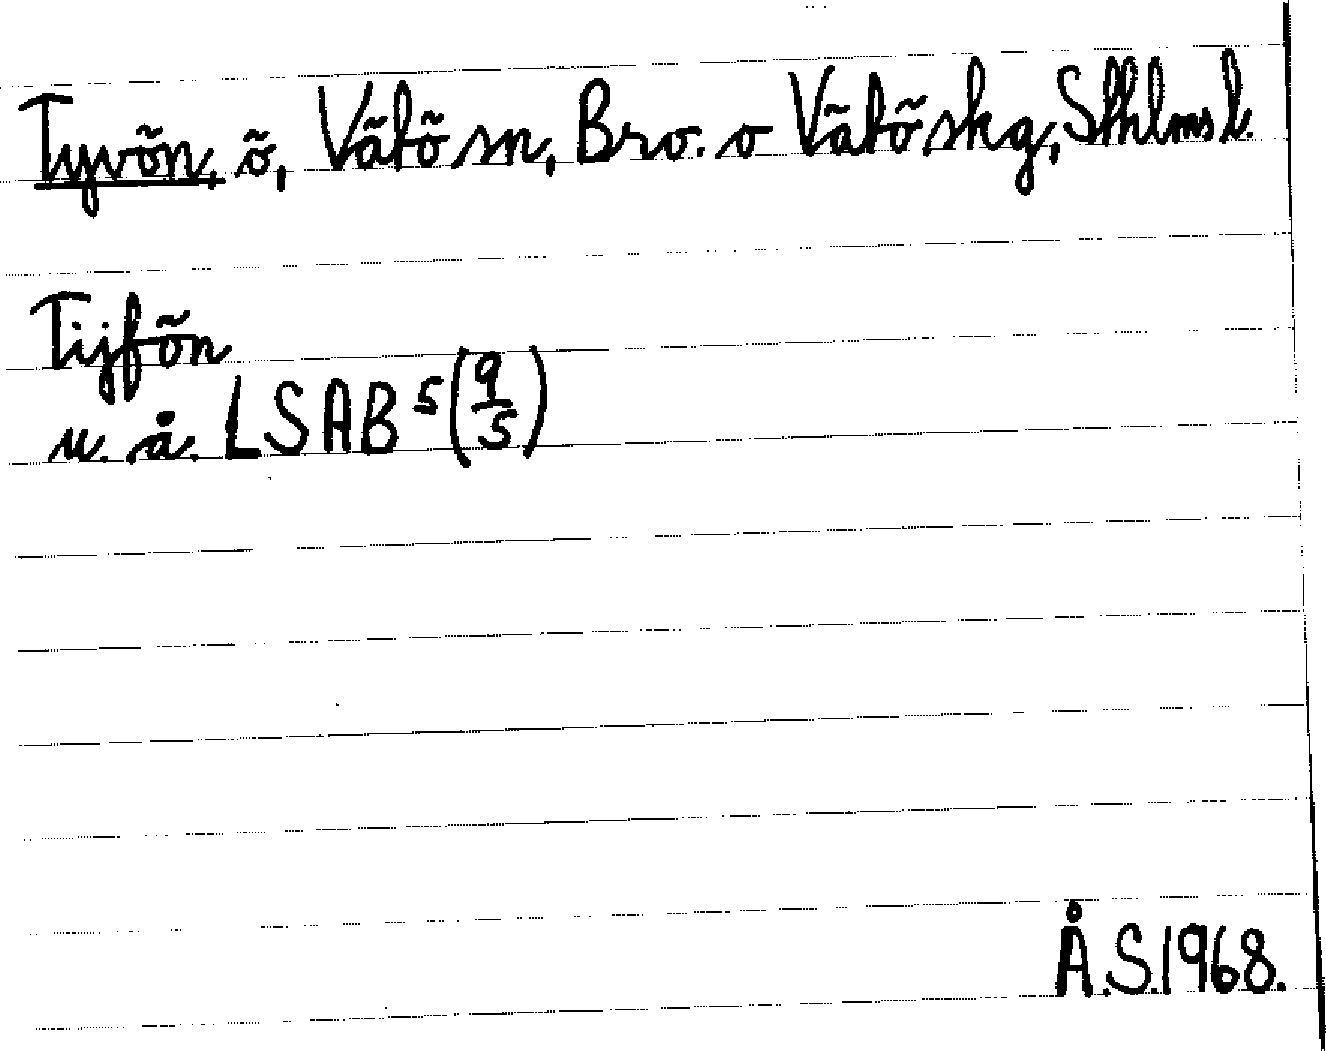 Tyvön, ö, Vätö sn, Bro. o Vätö skg, Sthlms l.
Tijfön
u. å. LSAB⁵(9/5)
Å.S.1968.